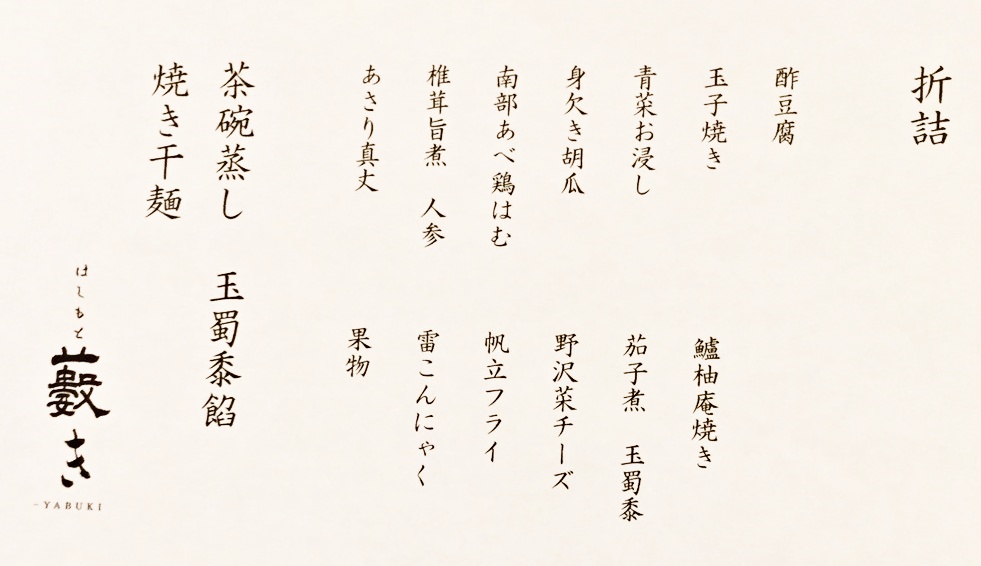 折詰
酢豆腐
玉子焼き　鱸柚庵焼き
青菜お浸し　茄子煮　玉蜀黍
身欠き胡瓜　野沢菜チーズ
南部あべ鶏はむ　帆立フライ
椎茸旨煮　人参　雷こんにゃく
あさり真丈　果物
茶碗蒸し　玉蜀黍餡
焼き干麺
はしもと
藪き
-YABUKI